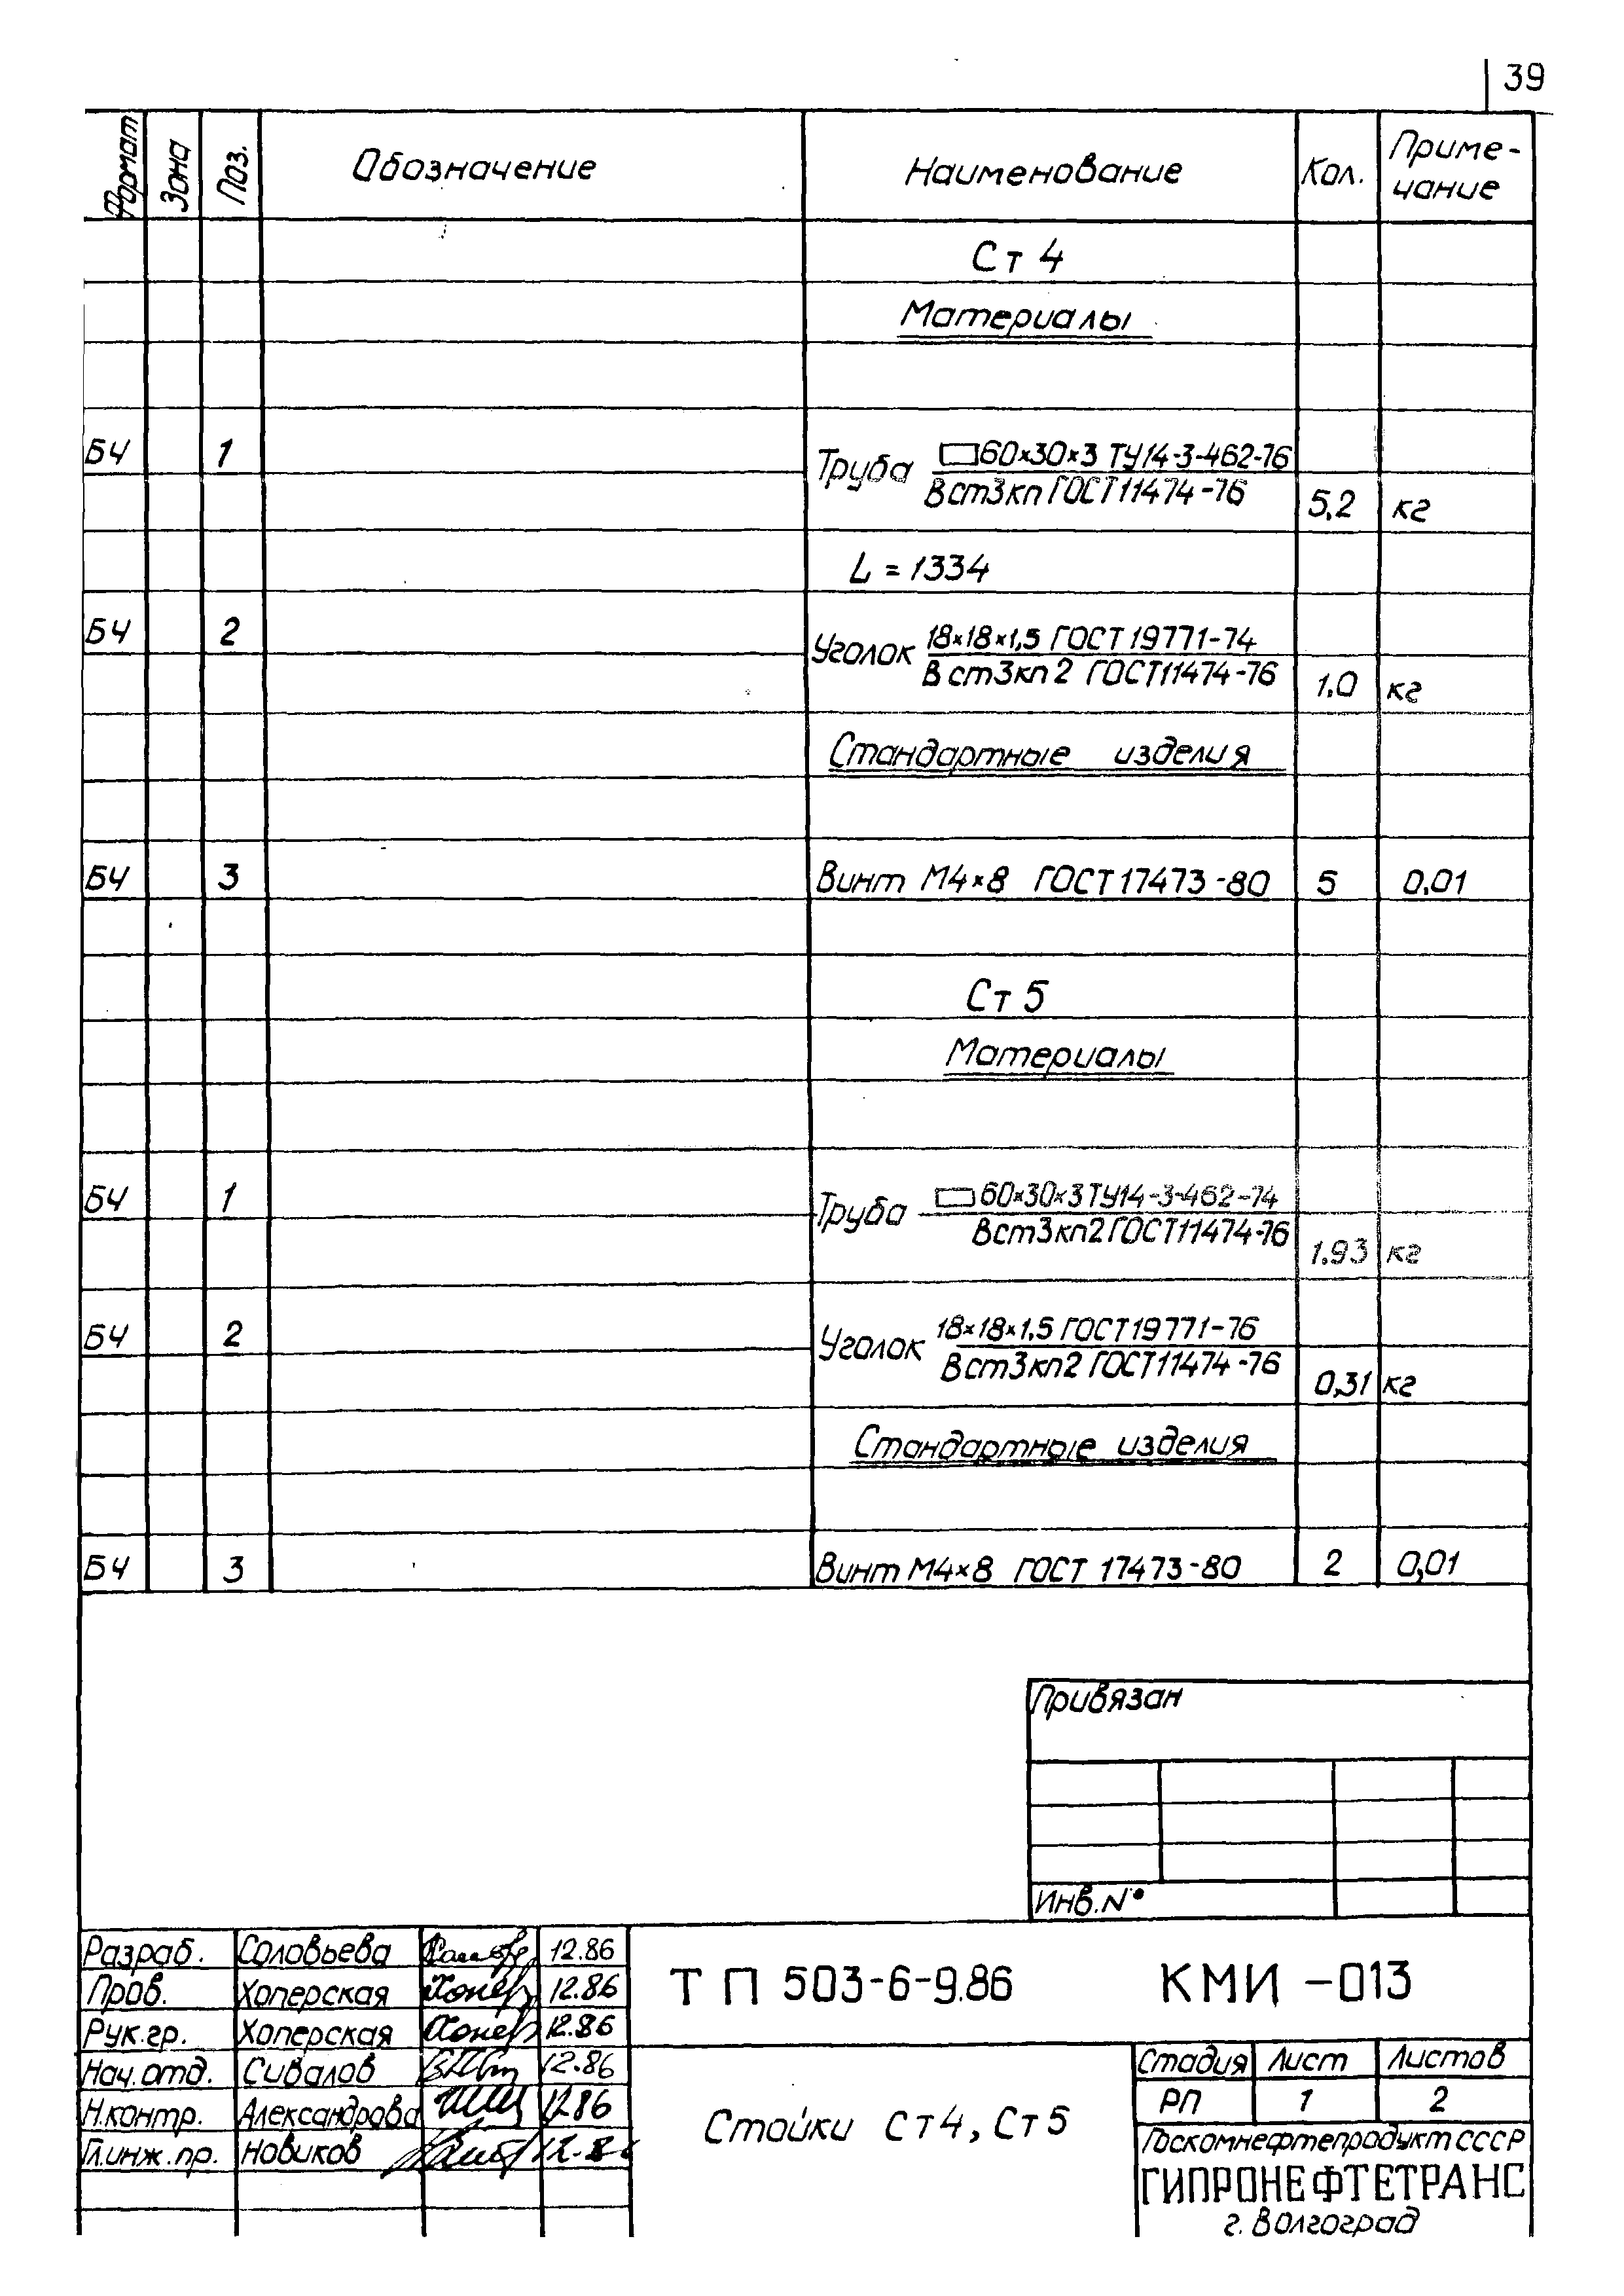 39
Формат Зона Поз. Обозначение Наименование Кол. Приме-
чание
Ст 4
Материалы
БЧ 1 Труба 60×30×3 ТУ14-3-462-76
В ст3кп ГОСТ11474-76 5,2 кг
L = 1334
БЧ 2 Уголок 18×18×1,5 ГОСТ 19771-74
В ст3кп 2 ГОСТ11474-76 1,0 кг
Стандартные изделия
БЧ 3 Винт М4×8 ГОСТ 17473-80 5 0.01
Ст 5
Материалы
БЧ 1 Труба 60×30×3 ТУ14-3-462-74
Вст3кп2 ГОСТ11474-76 1.93 кг
БЧ 2 Уголок 18×18×1.5 ГОСТ19771-76
В ст3кп2 ГОСТ11474-76 0,31 кг
Стандартные изделия
БЧ 3 Винт М4×8 ГОСТ 17473-80 2 0,01
Привязан
Инв.№
Разраб. Соловьева 12.86
Пров. Хоперская 12.86
Рук.гр. Хоперская 12.86
Нач.отд. Сивалов 12.86
Н.контр. Александрова 12.86
Гл.инж.пр. Новиков 12.86
ТП 503-6-9.86 КМИ-013
Стойки Ст4, Ст5
Стадия Лист Листов
РП 1 2
Госкомнефтепродукт СССР
ГИПРОНЕФТЕТРАНС
г. Волгоград